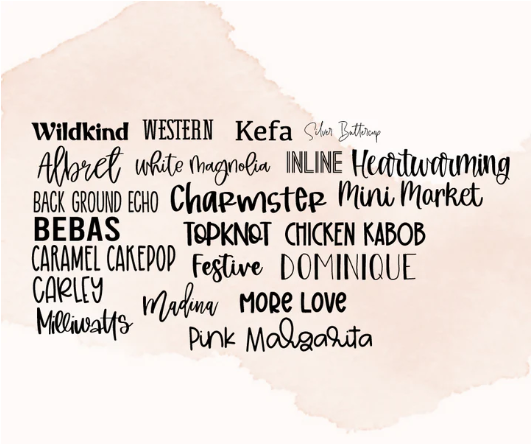 Wildkind WESTERN Kefa Silver Buttercup
Albret White Magnolia INLINE Heartwarming
BACK GROUND ECHO Charmster Mini Market
BEBAS TOPKNOT CHICKEN KABOB
CARAMEL CAKEPOP Festive DOMINIQUE
CARLEY Madina MORE LOVE
Milliwatts
Pink Margarita